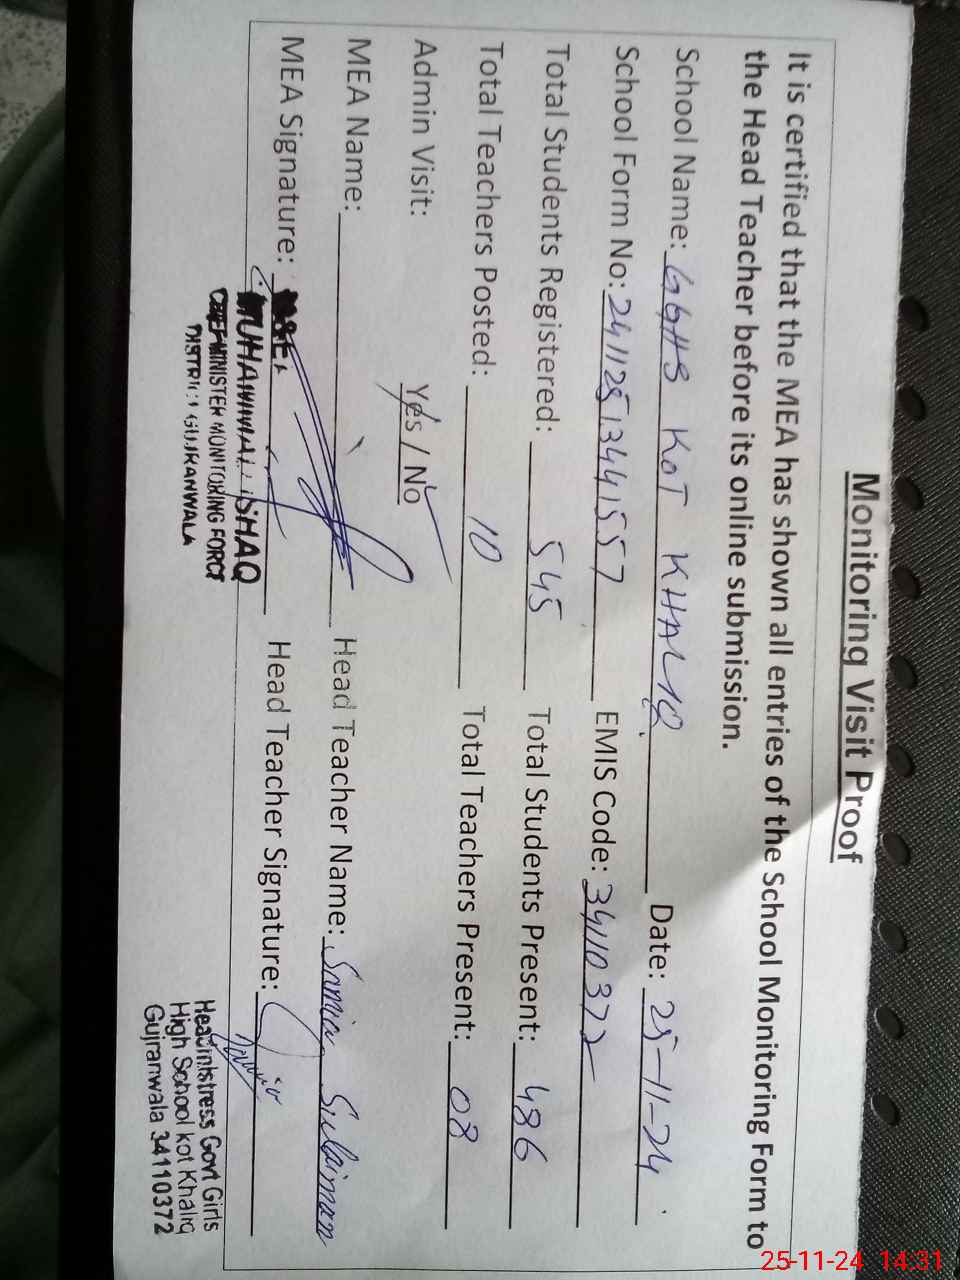 Monitoring Visit Proof
It is certified that the MEA has shown all entries of the School Monitoring Form to
the Head Teacher before its online submission.
School Name: GGHS KOT KHALIQ Date: 25-11-24
School Form No: 24112513441557 EMIS Code: 34110372
Total Students Registered: 545 Total Students Present: 486
Total Teachers Posted: 10 Total Teachers Present: 08
Admin Visit: Yes / No
MEA Name: Head Teacher Name: Samia Sulaiman
MEA Signature: Head Teacher Signature:
MUHAMMAD ISHAQ
CHIEF MINISTER MONITORING FORCE
DISTRICT GUJRANWALA
Headmistress Govt Girls
High School kot Khaliq
Gujranwala 34110372
25-11-24 14:31